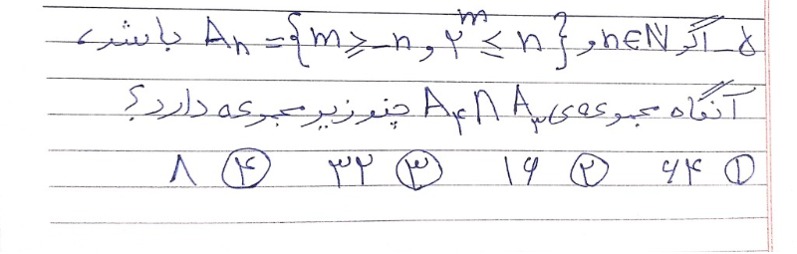 ۷_ اگر n∈N و A_n = {m ≥ -n و ۲^m ≤ n} باشد،
آنگاه مجموعه‌ی A_۴ ∩ A_۳ چند زیرمجموعه دارد؟
① ۶۴ ② ۱۶ ③ ۳۲ ④ ۸